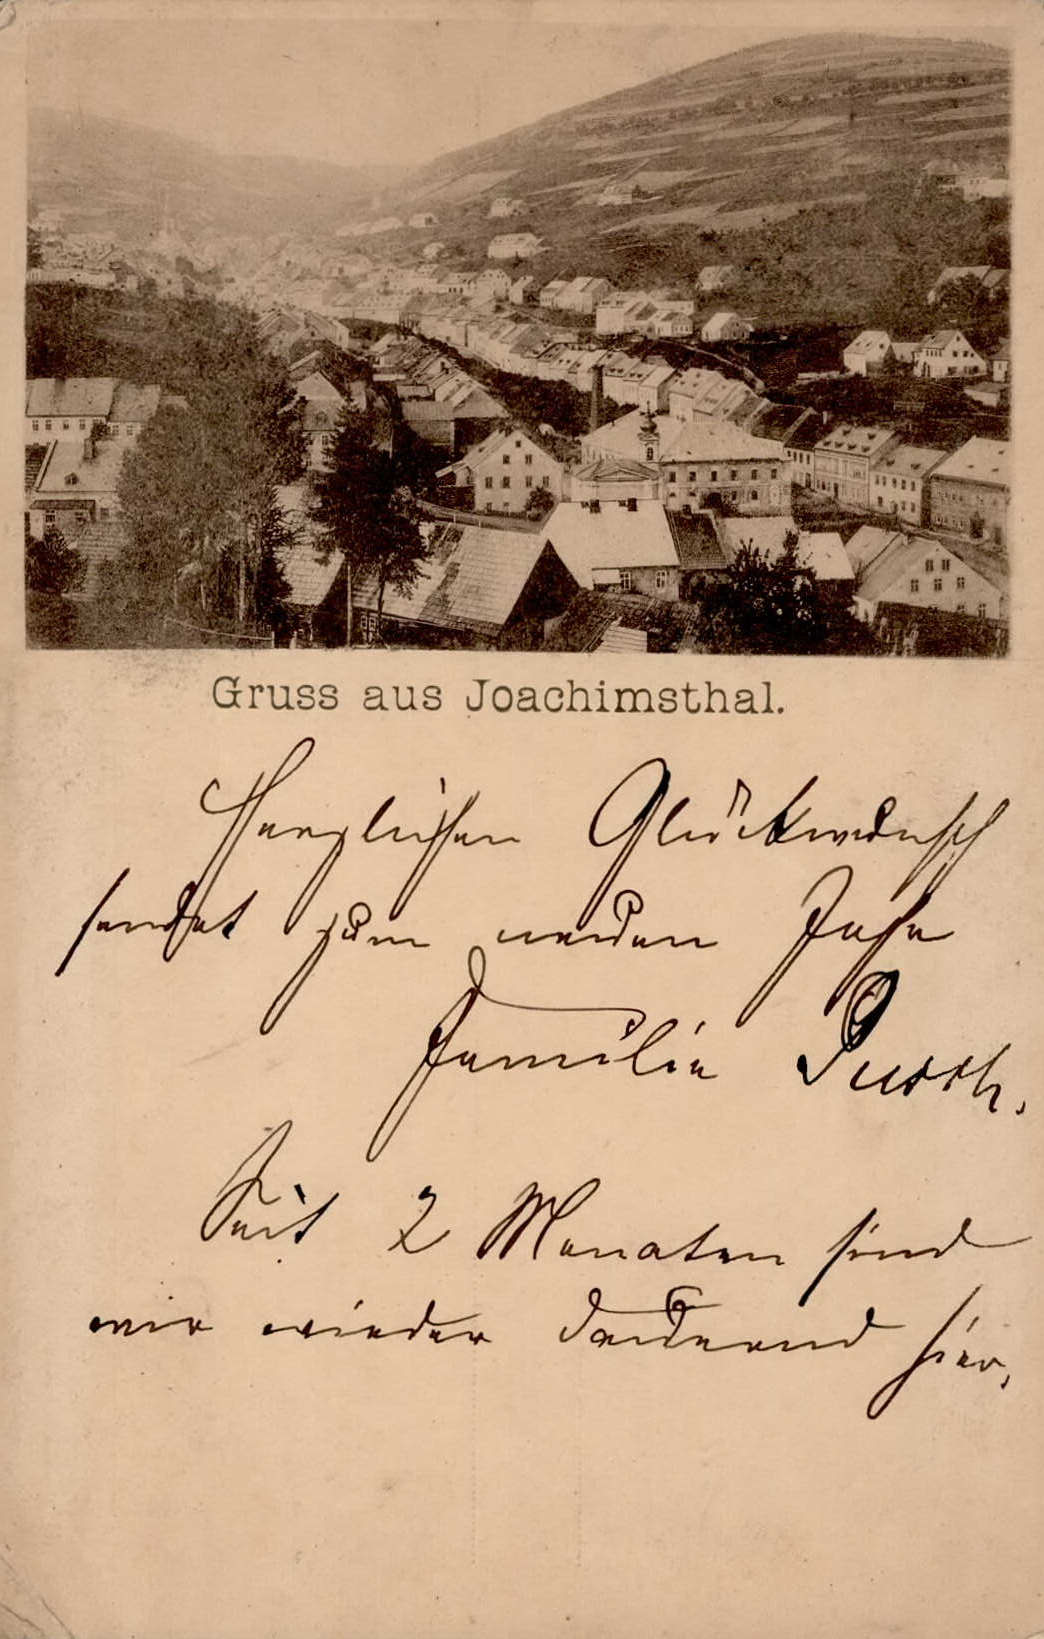 Gruss aus Joachimsthal.
Herzlichen Glückwunsch
sendet zum neuen Jahr
Familie
Seit 2 Monaten sind
wir wieder dauernd hier.